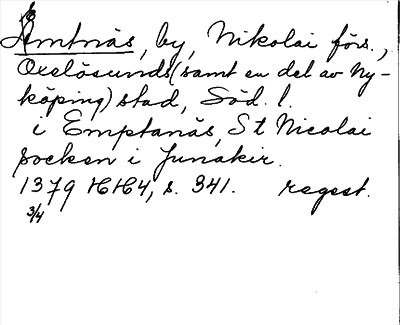 Ämtnäs, by, Nikolai förs.,
Oxelösunds (samt en del av Ny-
köping) stad, Söd. l.
i Emptanäs, St Nicolai
socken i Junakir.
1379 HH4, s. 341. regest.
3/4